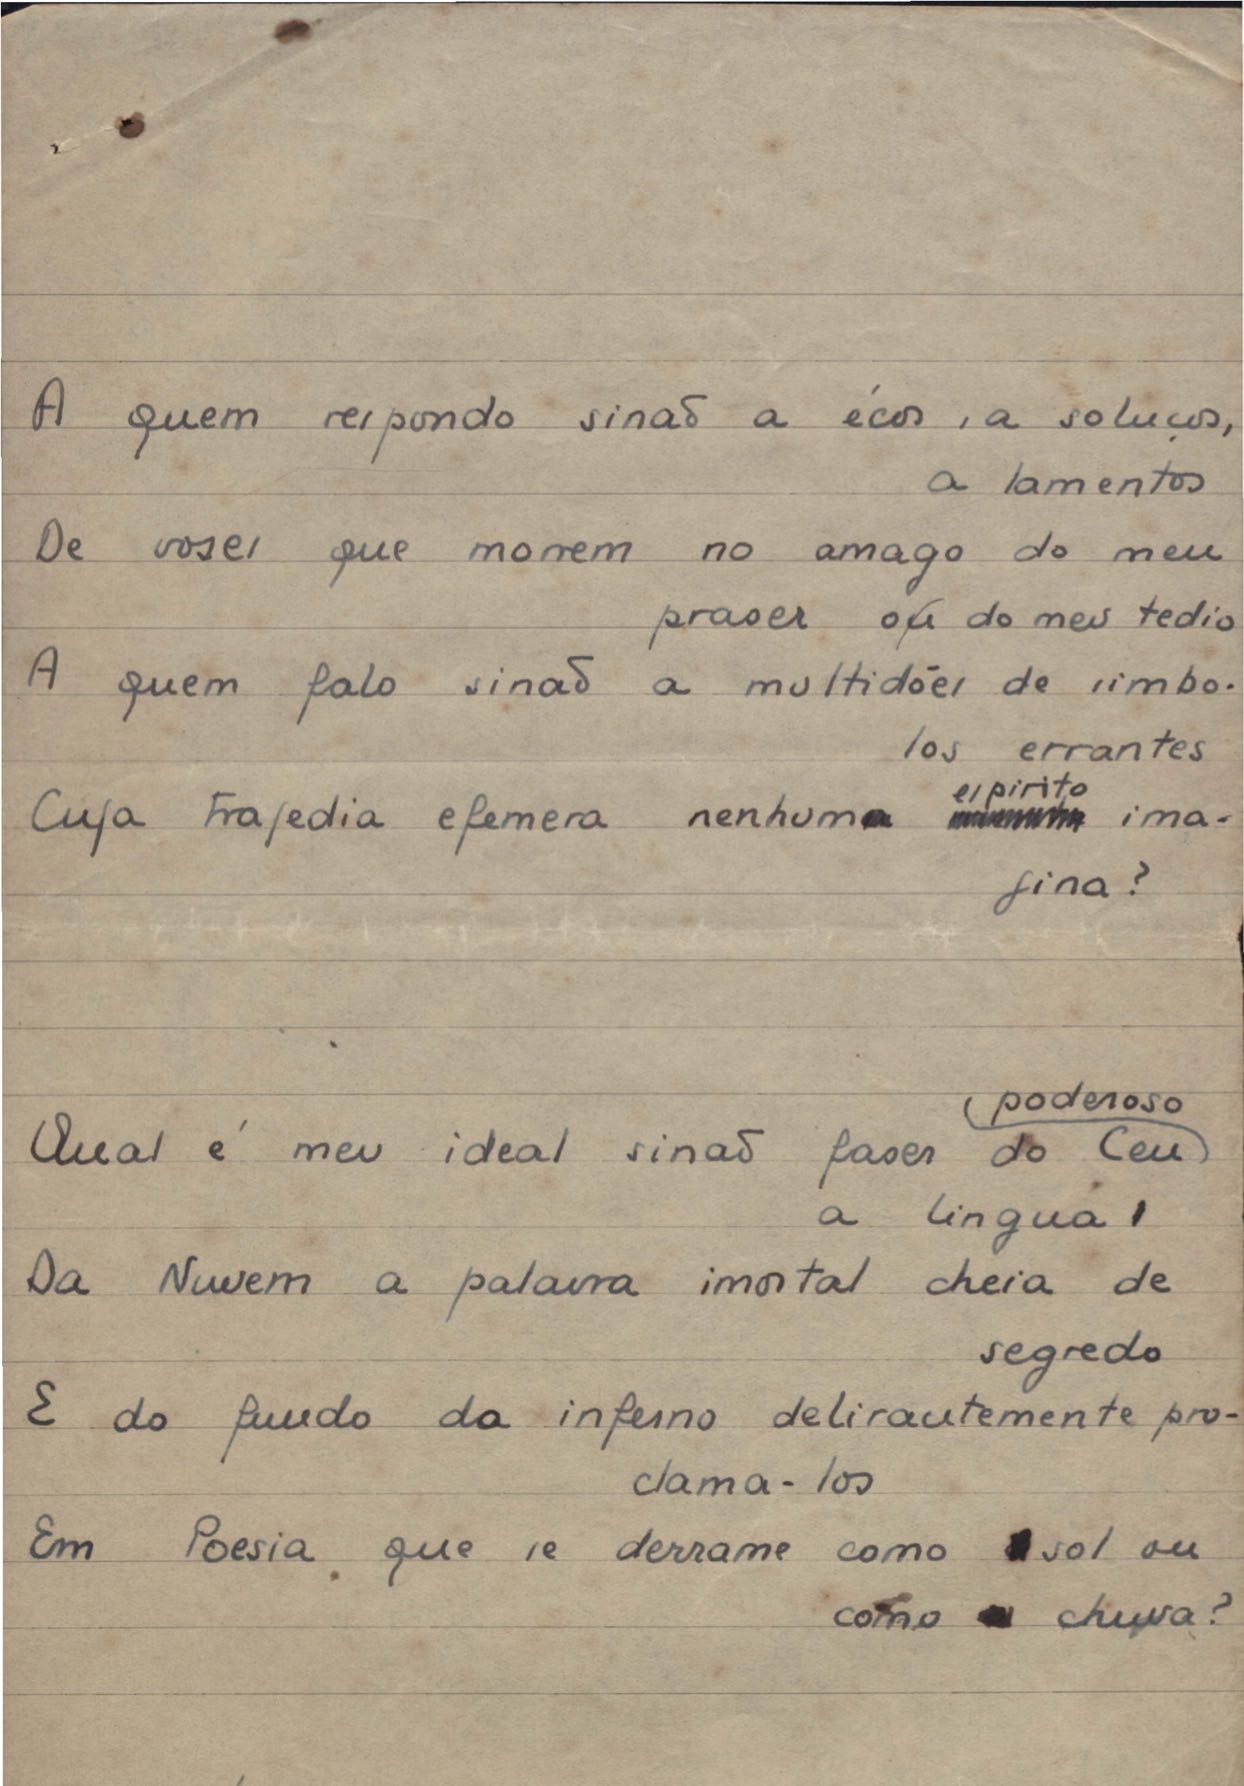 A quem respondo sinaõ a écos, a soluços,
a lamentos
De voses que morrem no amago do meu
praser ou do meu tedio
A quem falo sinaõ a multidões de simbo-
los errantes
Cuja trajedia efemera nenhum espirito ima-
gina?
poderoso
Qual é meu ideal sinaõ faser do Ceu
a lingua
Da Nuvem a palavra imortal cheia de
segredo
E do fundo do inferno delirantemente pro-
clama-los
Em Poesia que se derrame como sol ou
como chuva?